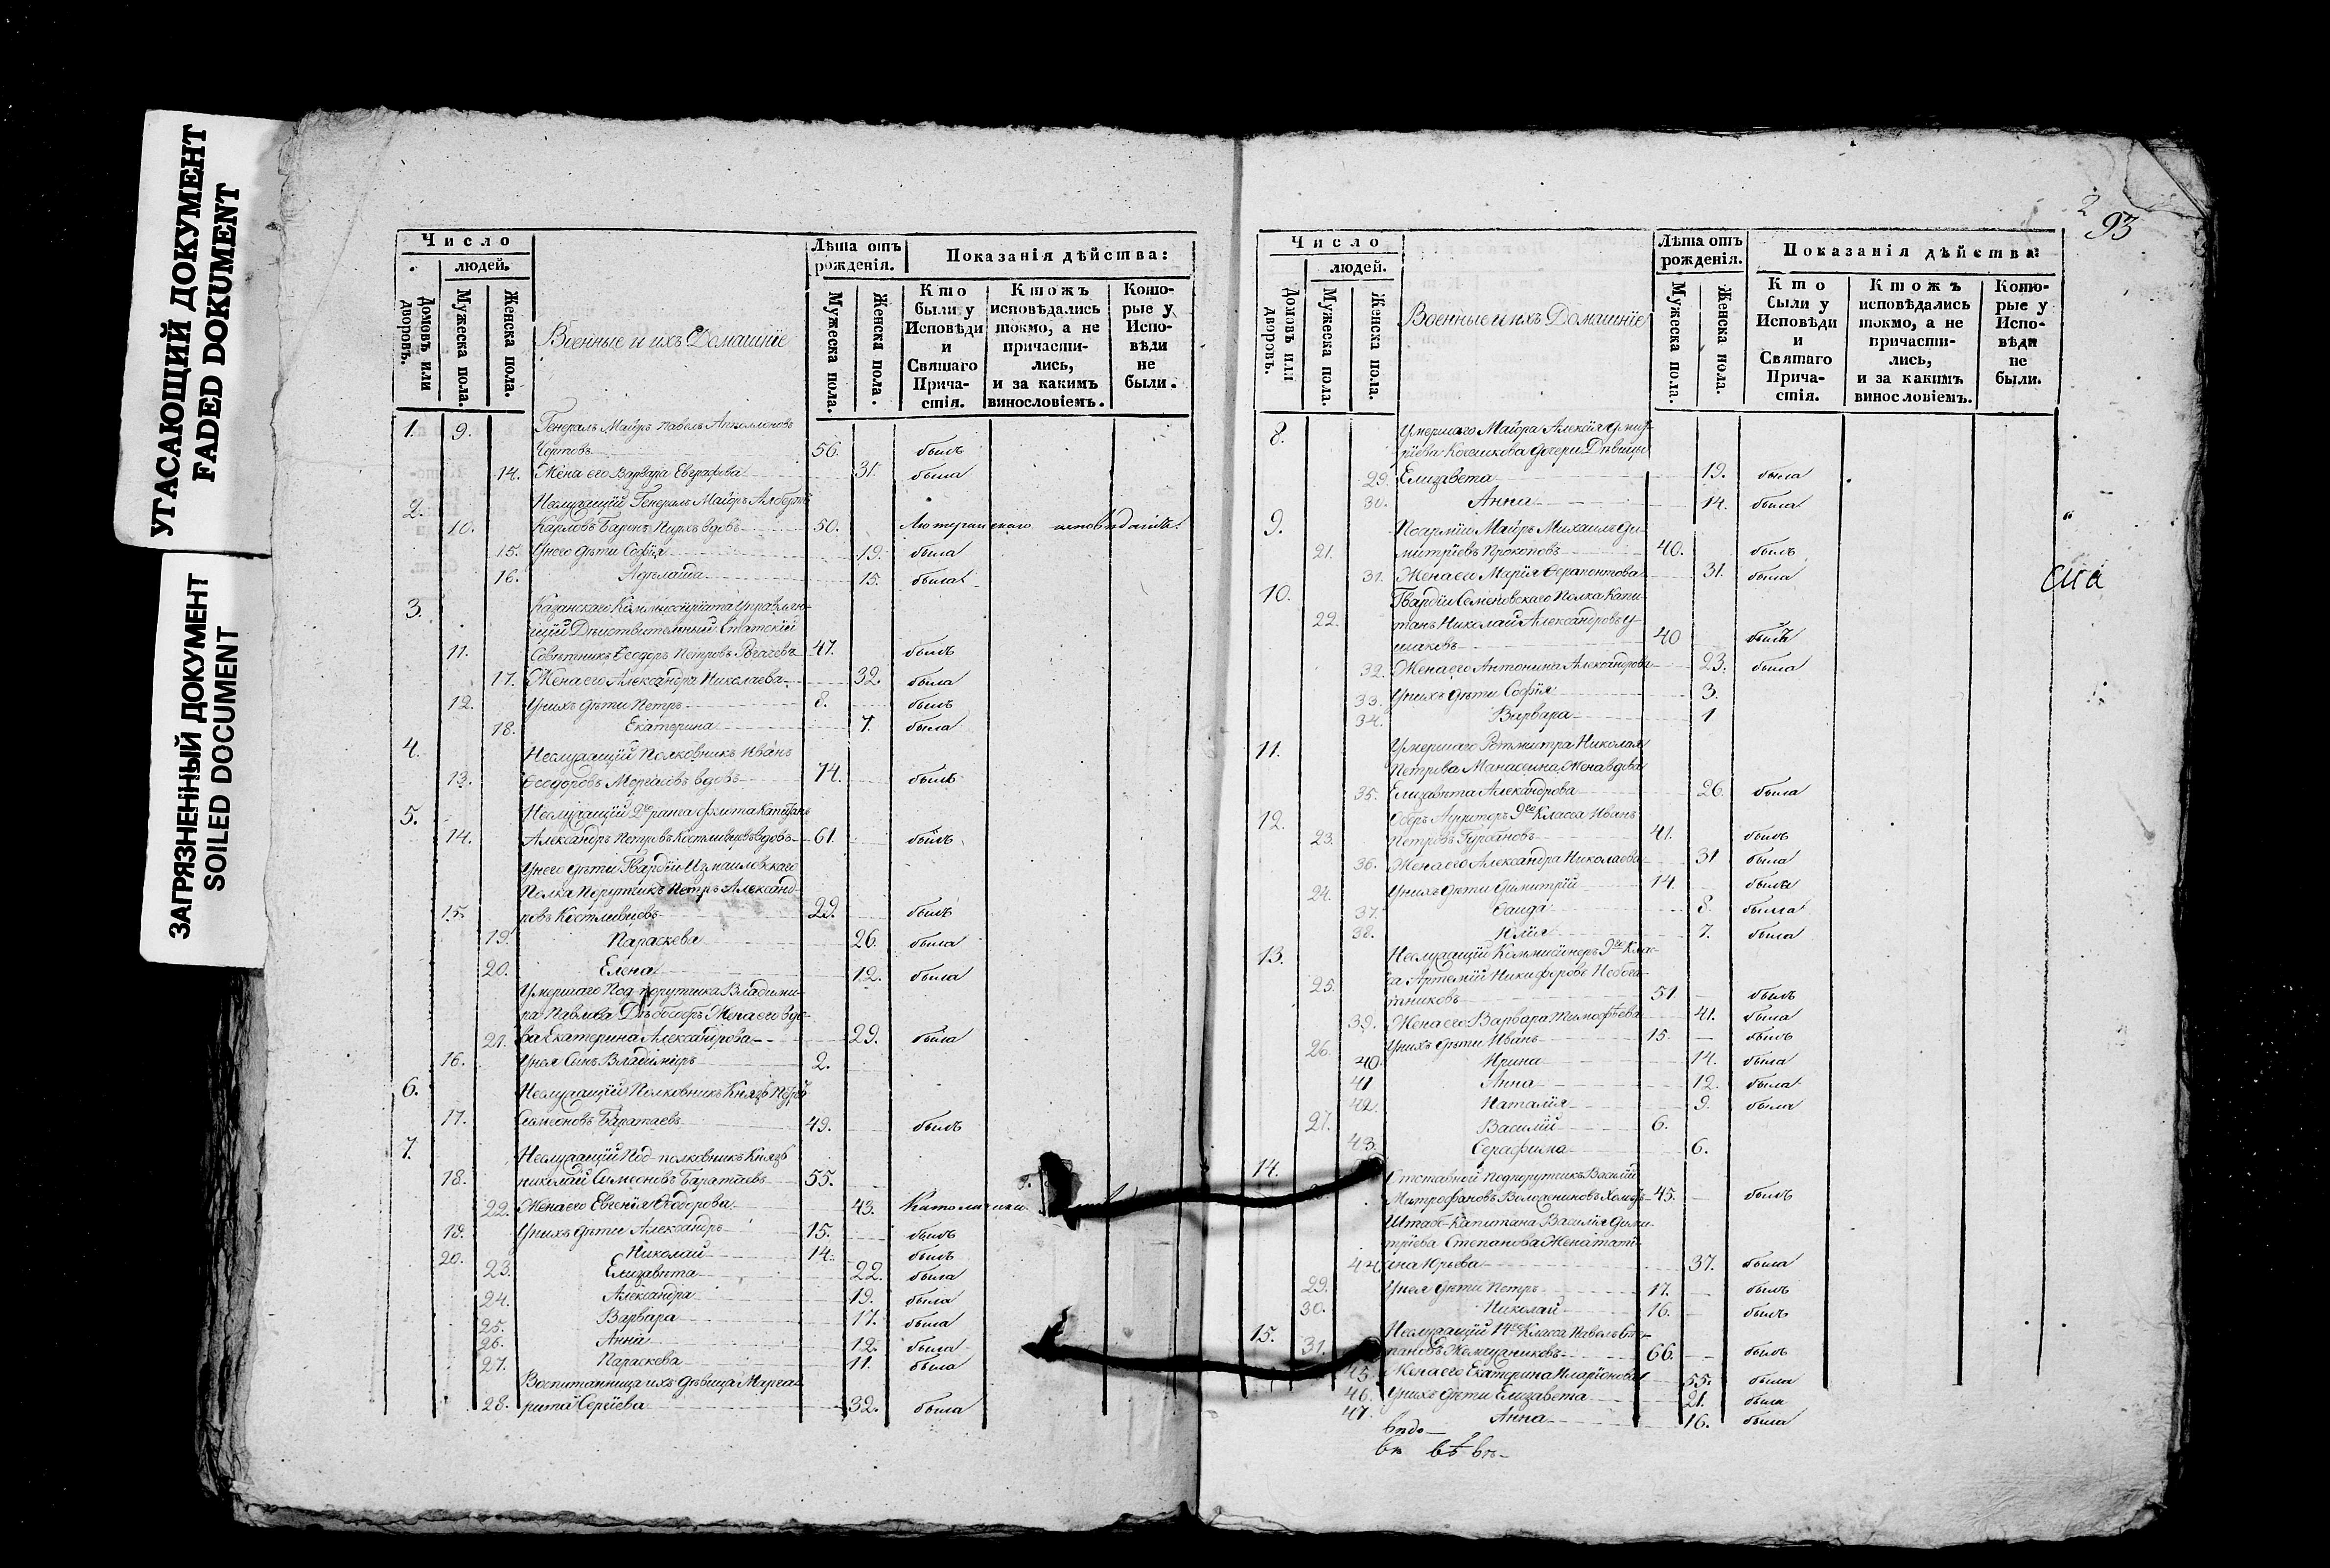 УГАСАЮЩИЙ ДОКУМЕНТ
FADED DOKUMENT
ЗАГРЯЗНЕННЫЙ ДОКУМЕНТ
SOILED DOCUMENT
Число
людей.
Домовъ или дворовъ.
Мужеска пола.
Женска пола.
Военные и ихъ Домашнiе
Лѣта отъ рожденiя.
Мужеска пола.
Женска пола.
Показанiя дѣйства:
Кто были у Исповѣди и Святаго Прича-стiя.
Ктожъ исповѣдались токмо, а не причасти-лись, и за какимъ винословiемъ.
Кото-рые у Испо-вѣди не были.
1. 9. Генералъ Маiоръ Павелъ Аполлоновъ
Чертовъ 56. былъ
14. Жена его Варвара Евграфова 31. была
2. Неслужащiй Генералъ Маiоръ Албертъ
10. Карловъ Баронъ Пирхъ вдовъ 50. Лютеранскаго исповѣданiя.
15. У него дѣти Софiя 19. была
16. Аделаида 15. была
3. Казанскаго Коммиссiрiата Управляю-
щiй Дѣйствительный Статскiй
11. Совѣтникъ Ѳеодоръ Петровъ Рогачевъ 47. былъ
17. Жена его Александра Николаева 32. была
12. У нихъ дѣти Петръ 8. былъ
18. Екатерина 7. была
4. Неслужащiй Полковникъ Иванъ
13. Ѳеодоровъ Моргалевъ вдовъ 74. былъ
5. Неслужащiй 2го ранга флота Капитанъ
14. Александръ Петровъ Костливцевъ вдовъ 61. былъ
У него дѣти Гвардiи Измайловскаго
Полка Порутчикъ Петръ Александ-
15. ровъ Костливцевъ 22. былъ
19. Параскева 26. была
20. Елена 12. была
Умершаго Под-порутчика Владими-
ра Павлова Жена его вдо-
21. ва Екатерина Александрова 29. была
16. У нея Сынъ Владимiръ 2.
6. Неслужащiй Полковникъ Князь Петръ
17. Симеоновъ Баратаевъ 49. былъ
7. Неслужащiй Под-полковникъ Князь
18. Николай Симеоновъ Баратаевъ 55.
22. Жена его Евгенiя Ѳеодорова 43. Католички
19. У нихъ дѣти Александръ 15. былъ
20. Николай 14. былъ
23. Елизавета 22. была
24. Александра 19. была
25. Варвара 17. была
26. Анна 12. была
27. Параскева 11. была
Воспитанница ихъ дѣвица Марга-
28. рита Сергiева 32. была
2
93
Число
людей.
Домовъ или дворовъ.
Мужеска пола.
Женска пола.
Военные и ихъ Домашнiе
Лѣта отъ рожденiя.
Мужеска пола.
Женска пола.
Показанiя дѣйства:
Кто были у Исповѣди и Святаго Прича-стiя.
Ктожъ исповѣдались токмо, а не причасти-лись, и за какимъ винословiемъ.
Кото-рые у Испо-вѣди не были.
8. Умершаго Маiора Алексiя Дмит-
рiева дочери Дѣвицы
29. Елизавета 19. была
30. Анна 14. была
9. По армiи Маiоръ Михаилъ Ди-
21. митрiевъ Прокоповъ 40. былъ
31. Жена его Марiя Серапонтова 31. была
10. Гвардiи Семеновскаго Полка Капи-
22. танъ Николай Александровъ У-
шаковъ 40 былъ
32. Жена его Антонина Александрова 23. была
33. У нихъ дѣти Софiя 3.
34. Варвара 1
11. Умершаго Ротмистра Николая
Петрова Манасеина Жена вдова
35. Елизавета Александрова 26. была
12. Оберъ Аудиторъ 9го Класса Иванъ
23. Петровъ Турбановъ 41. былъ
36. Жена его Александра Николаева 31 была
24. У нихъ дѣти Димитрiй 14. былъ
37. Ѳаида 8. была
38. Юлiя 7. была
13. Неслужащiй Коммисiонеръ 9го Клас-
25. са Артемiй Никифоровъ Небога-
тиковъ 51. былъ
39. Жена его Варвара Тимофѣева 41. была
26. У нихъ дѣти Иванъ 15. былъ
40. Ирина 14. была
41 Анна 12. была
42. Наталiя 9. была
27. Василiй 6.
43. Серафима 6.
14. Отставной Подпорутчикъ Василiй
Митрофановъ Холостъ 45. былъ
Штабс-Капитана Василiя Дими-
трiева Степанова Жена Татi-
44. ана Юрьева 37. была
29. У нея дѣти Петръ 17. былъ
30. Николай 16. былъ
15. Неслужащiй 14го Класса Павелъ Сте-
31. пановъ 66. былъ
45. Жена его Екатерина Иларiонова 55. была
46. У нихъ дѣти Елизавета 21. была
47. Анна 16. была